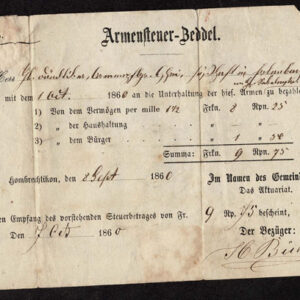 Armensteuer-Zeddel.
mit dem 1 Oct. 1860 an die Unterhaltung der hies. Armen zu bezahlen
1) Von dem Vermögen per mille 1½ Frkn. 8 Rpn. 25
2) „ der Haushaltung „ „
3) „ dem Bürger „ 1 „ 50
Summa: Frkn. 9 Rpn. 75
Hombrechtikon, den 8 Sept 1860
Im Namen des Gemein
Das Aktuariat.
en Empfang des vorstehenden Steuerbetrages von Fr. 9 Rp. 75 bescheint,
Den 7 Oct 1860
Der Bezüger: